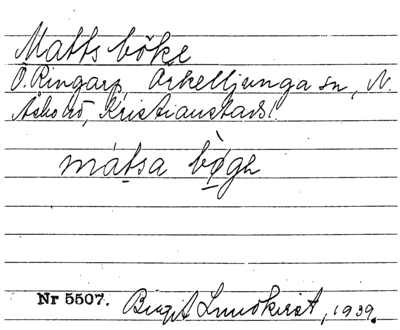 Matts böke
Ö. Ringarp, Örkelljunga sn, N.
Åsbo hd, Kristianstads l.
mátsa bø̀gə
Nr 5507. Birgit Lundkvist, 1939.